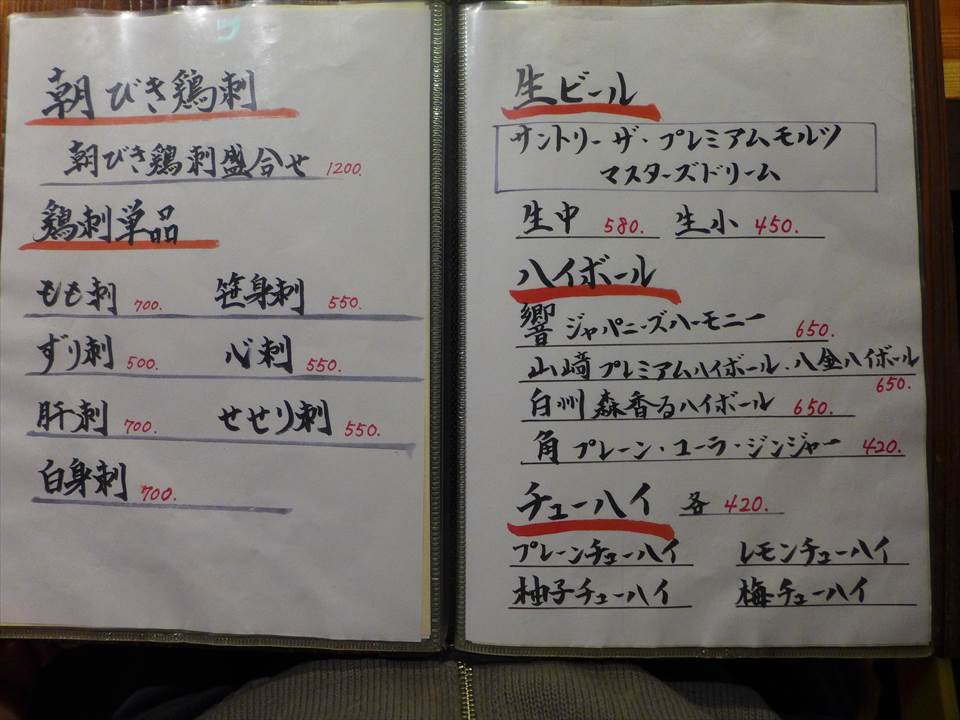 朝びき鶏刺
朝びき鶏刺盛合せ 1200.
鶏刺単品
もも刺 700. 笹身刺 550.
ずり刺 500. 心刺 550.
肝刺 700. せせり刺 550.
白身刺 700.
生ビール
サントリー ザ・プレミアムモルツ
マスターズドリーム
生中 580. 生小 450.
ハイボール
響 ジャパニーズハーモニー 650.
山崎 プレミアムハイボール・八金ハイボール
650.
白州 森香るハイボール 650.
角 プレーン・コーラ・ジンジャー 420.
チューハイ 各 420.
プレーンチューハイ レモンチューハイ
柚子チューハイ 梅チューハイ